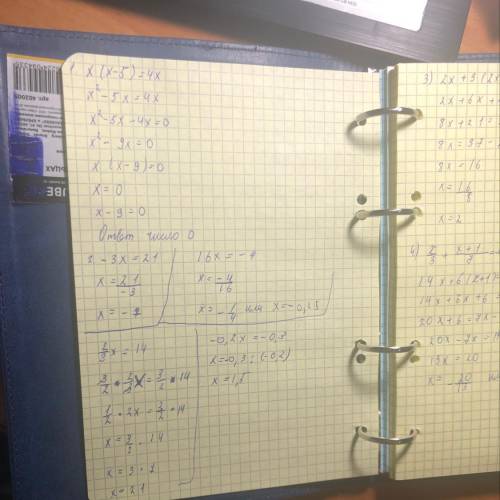 1. x·(x-5)=4x
x²-5x=4x
x²-5x-4x=0
x²-9x=0
x·(x-9)=0
x=0
x-9=0
Ответ число 0
2. -3x=21
x=21/-3
x=-7
16x=-4
x=-4/16
x=-1/4 или x=-0,25
2/3x=14
3/2·2/3x=3/2·14
1/2·2x=3/2·14
x=3/2·14
x=3·7
x=21
-0,2x=-0,3
x=-0,3:(-0,2)
x=1,5
3) 2x+3(2x
2x+6x+
8x+21=3
8x=37-
8x=16
x=16/8
x=2
4)
14x+6(x+1)
14x+6x+6
20x+6=7x-
20x-7x=
13x=20
x=20/13